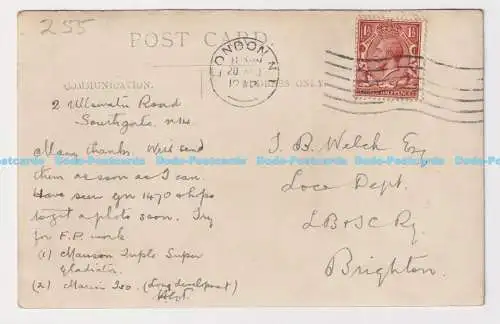 255
POST CARD
LONDON N.1
COMMUNICATION.
ADDRESS ONLY.
2 Ulswater Road
Southgate. N.14.
Many thanks. Will send
them as soon as I can.
Have seen gn 1470 & hope
to get a photo soon. Try
for F.P. work
(1) Mawson Triple Super
Gladiator
(2) Marion Iso. (Long development)
J. B. Welch Esq
Loco Dept.
LB&SC Ry
Brighton.
Dodo-Postcards Dodo-Postcards Dodo-Postcards Dodo-Postcards Dodo-Postcards